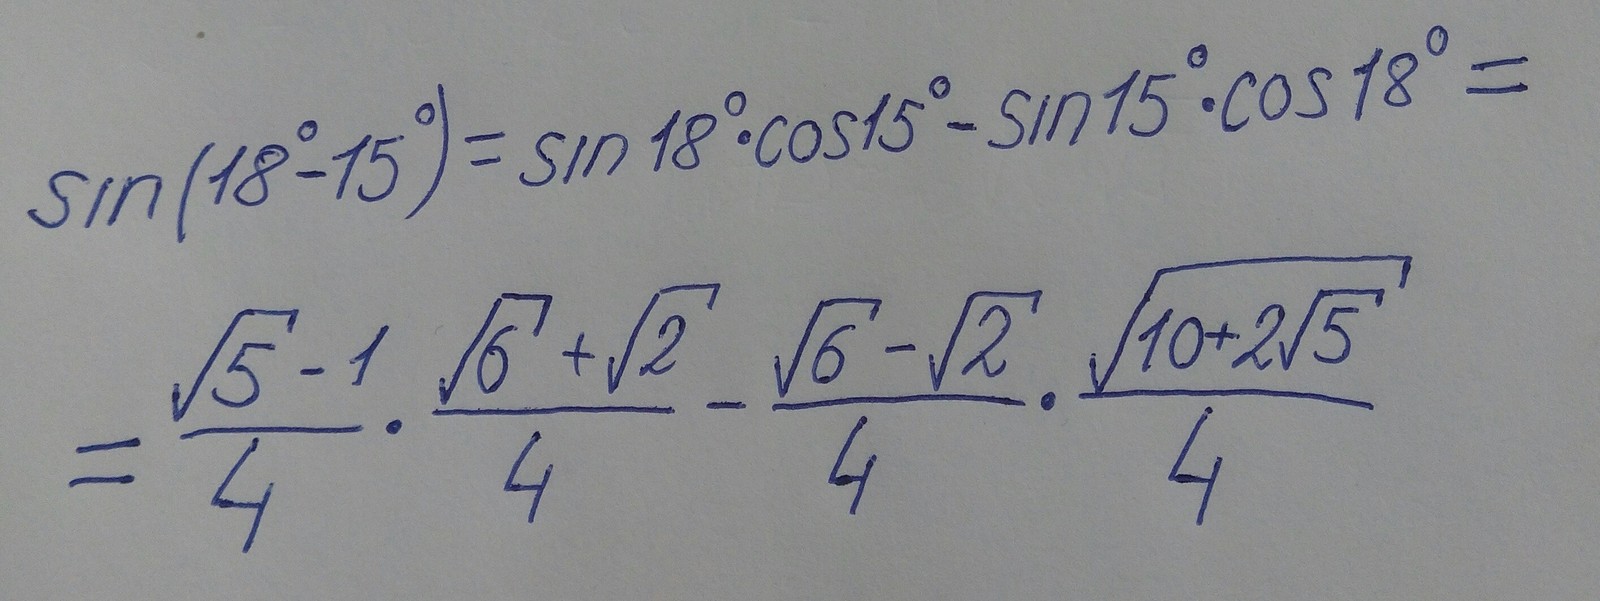 sin(18°-15°)=sin18°·cos15°-sin15°·cos18°=
= (√5-1)/4 · (√6+√2)/4 - (√6-√2)/4 · √(10+2√5)/4